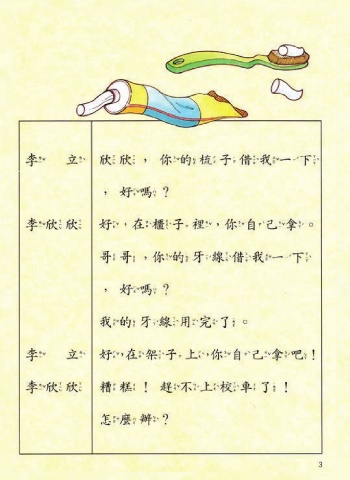 李立 欣欣，你的梳子借我一下
，好嗎？
李欣欣 好，在櫃子裡，你自己拿。
哥哥，你的牙線借我一下
，好嗎？
我的牙線用完了。
李立 好，在架子上，你自己拿吧！
李欣欣 糟糕！趕不上校車了！
怎麼辦？
3